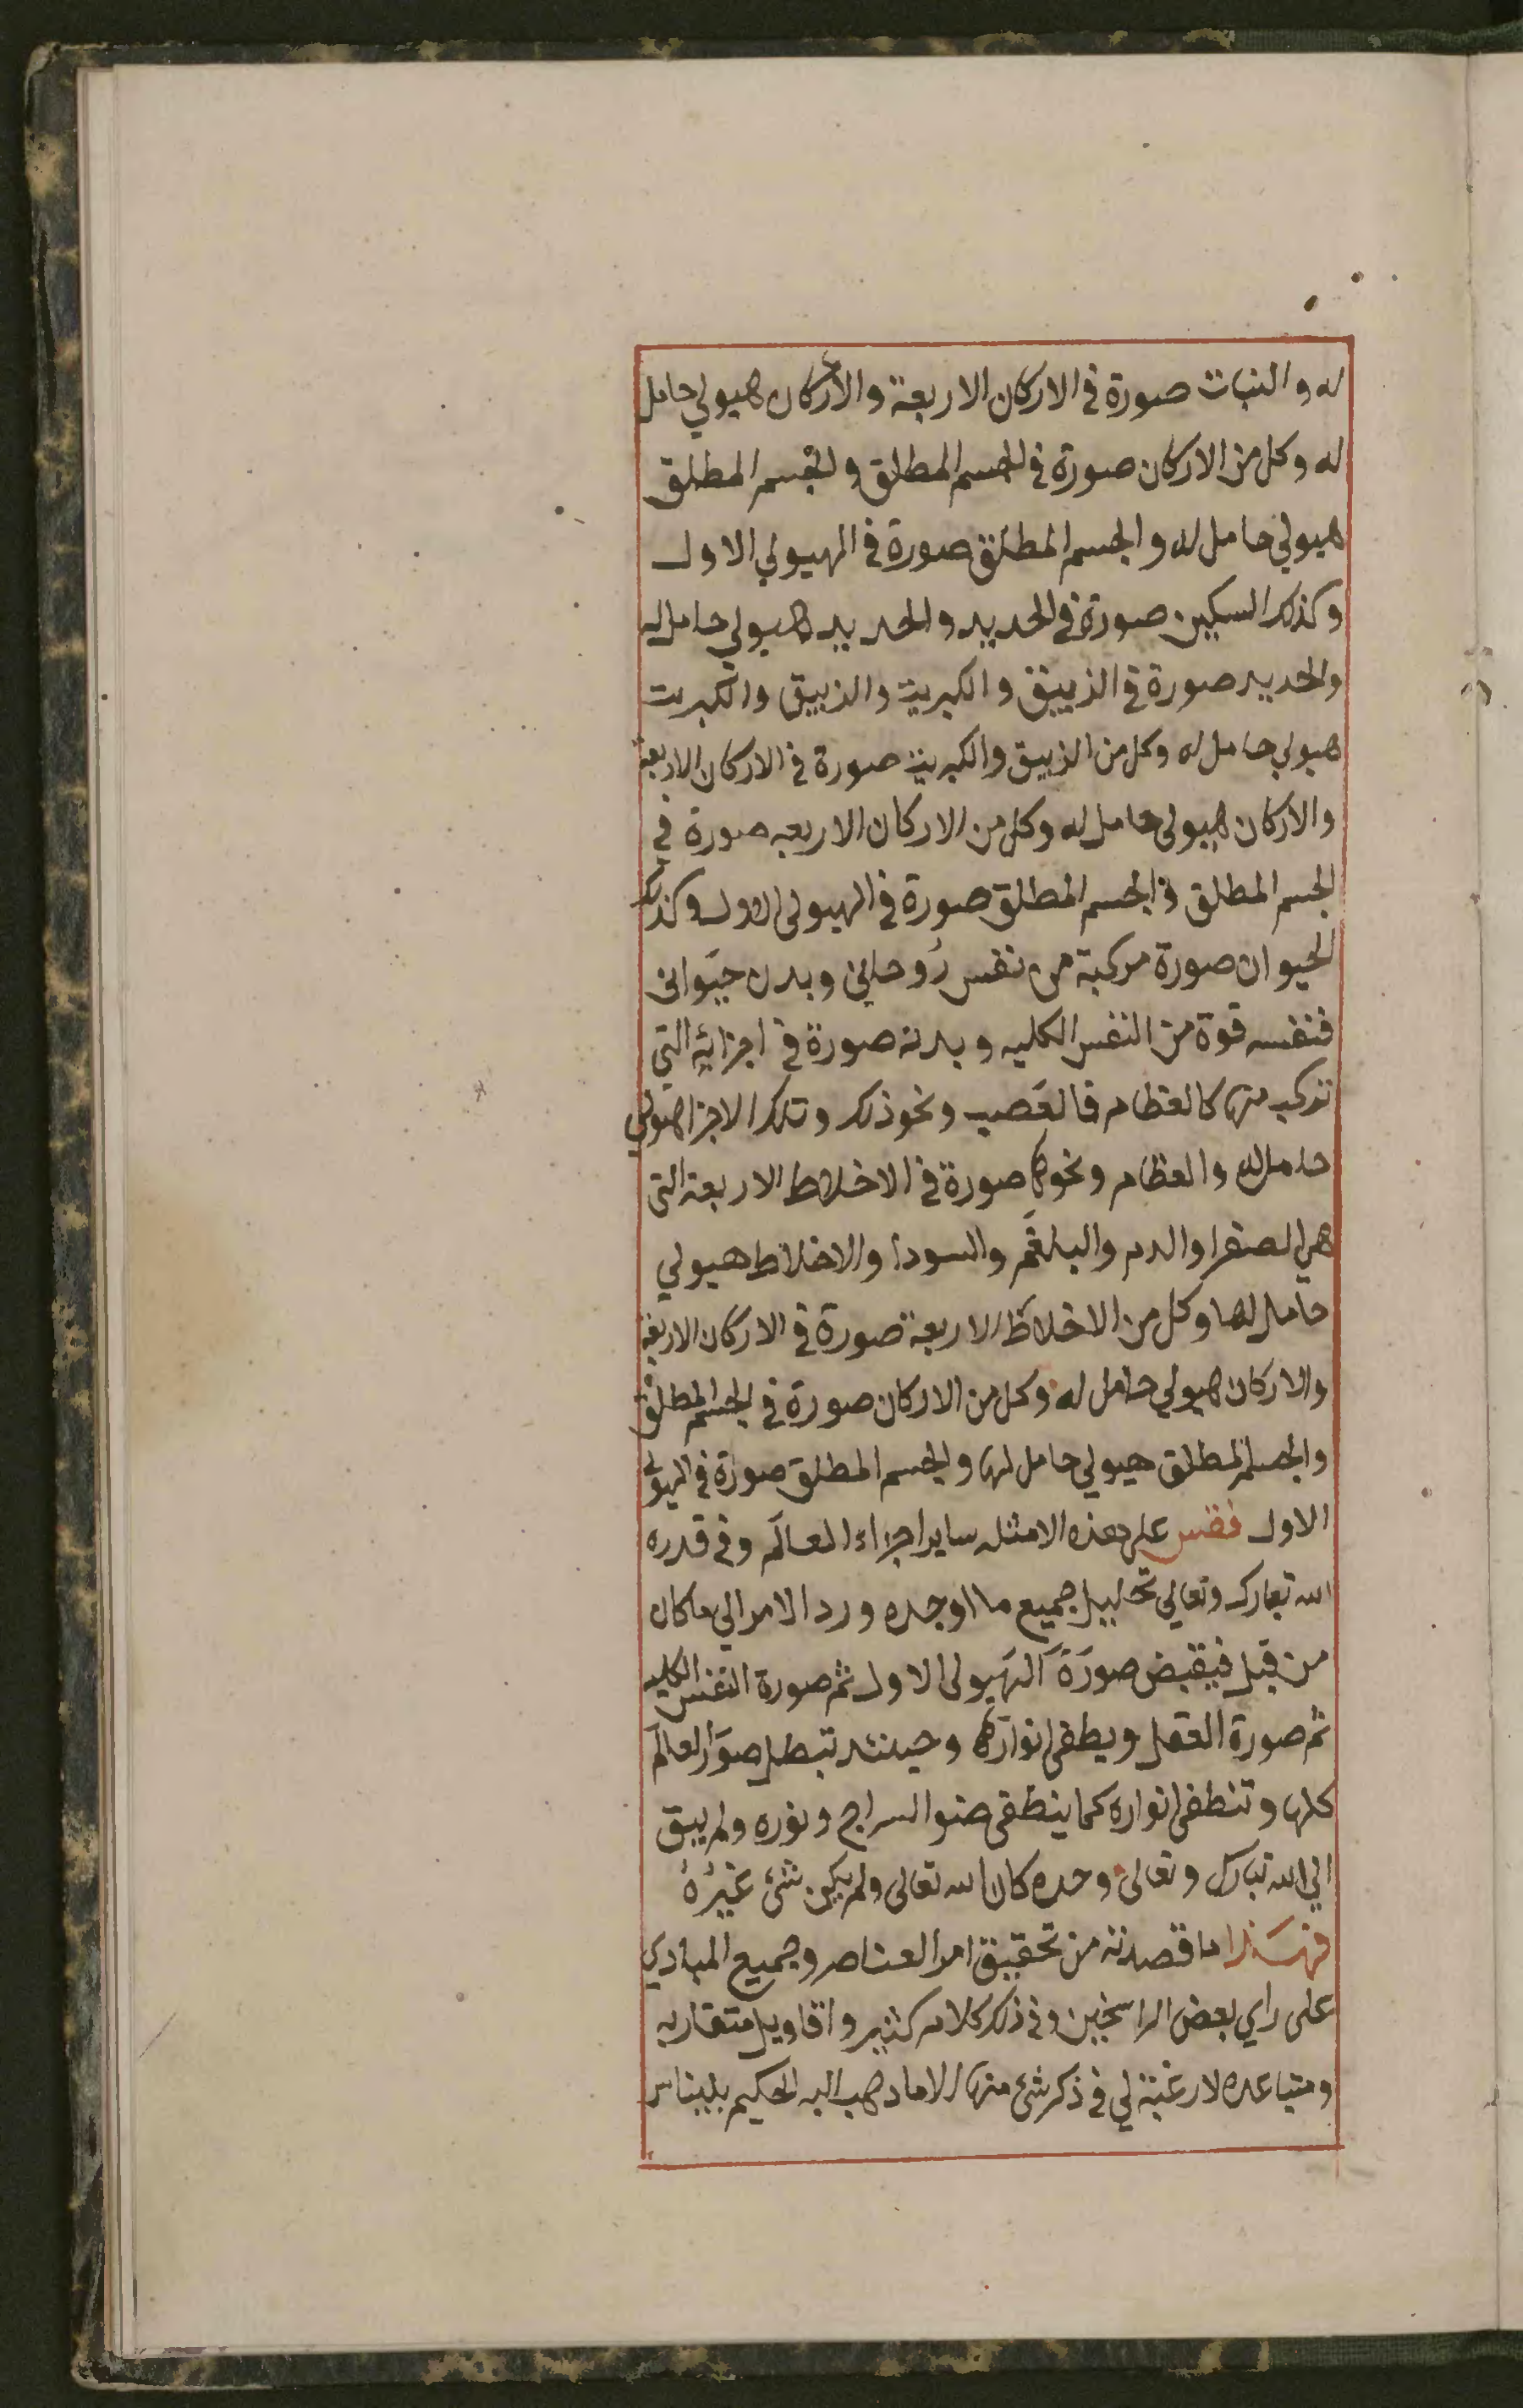 له والنبات صورة في الاركان الاربعة والاركان هيولي حامل
له وكل من الاركان صورة في الجسم المطلق والجسم المطلق
هيولي حامل له والجسم المطلق صورة في الهيولي الاول
وكذلك السكين صورة في الحديد والحديد هيولي حامل له
والحديد صورة في الزيبق والكبريت والزيبق والكبريت
هيولي حامل له وكل من الزيبق والكبريت صورة في الاركان الاربعة
والاركان هيولي حامل له وكل من الاركان الاربعه صورة في
الجسم المطلق والجسم المطلق صورة في الهيولى الاول وكذلك
الحيوان صورة مركبة من نفس رُوحاني وبدن حيَواني
فنفسه قوة من النفس الكليه وبدنه صورة في اجزائه التي
تركب منها كالعظام فالعَصب ونحو ذلك وتلك الاجزا هيولي
حامل له والعظام ونحوها صورة في الاخلاط الاربعة التى
هي الصفرا والدم والبلغَم والسودا والاخلاط هيولي
حامل لها وكل من الاخلاط الاربعة صورة في الاركان الاربعة
والاركان هيولي حامل له وكل من الاركان صورة في الجسم المطلق
والجسم المطلق هيولي حامل لها والجسم المطلق صورة في الهيولى
الاول فقس على هذه الامثله ساير اجزاء العالَم وفي قدره
الله تبارك وتعالي تحليل جميع ما اوجده ورد الامر الي ما كان
من قبل فيقبض صورَةَ الهيَولى الاول ثم صورة النفس الكليه
ثم صورة العقل ويطفى انوارها وحينئذ تبطل صوَر العالَم
كلها وتنطفى انواره كما ينطفى ضوا السراج ونوره ولم يبق
الي الله تبارك وتعالى وحده كان الله تعالى ولم يكن شئ غيرُهُ
فهَذا ما قصدته من تحقيق امر العناصر وجميع المبادي
على راي بعض الراسخين وفي ذلك كلام كثير واقاويل متقاربه
ومتباعده لا رغبة لي في ذكر شئ منها الا ما ذهب اليه الحكيم بليناس